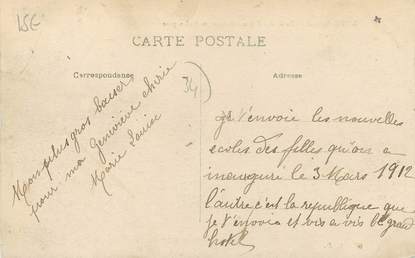 15€
CARTE POSTALE
Correspondance
Adresse
34
Mon plus gros baiser
pour ma Geneviève chérie
Marie Louise
Je t'envoie les nouvelles
ecoles des filles qu'on a
inauguré le 3 Mars 1912
l'autre c'est la republique que
je t'envoie et vis a vis le grand
hotel